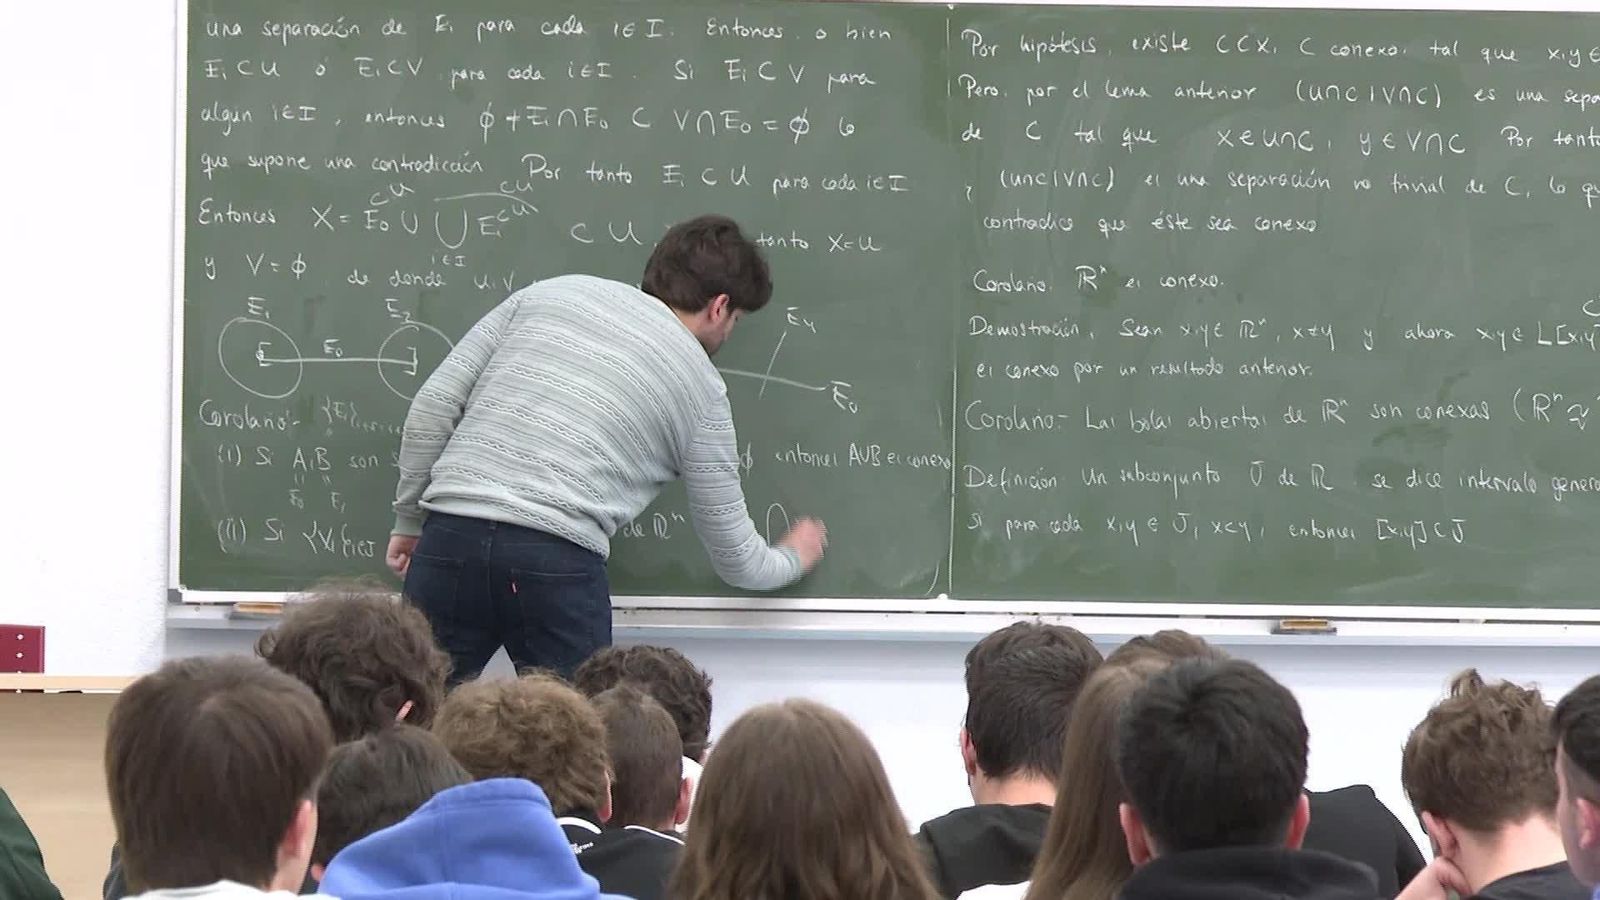 una separación de Ei para cada i∈I. Entonces, o bien
Ei⊂U ó Ei⊂V para cada i∈I. Si Ei⊂V para
algún i∈I, entonces ϕ≠Ei∩E0 ⊂ V∩E0=ϕ lo
que supone una contradicción. Por tanto Ei⊂U para cada i∈I
⊂U ⊂U
Entonces X = E0 ∪ ⋃ Ei ⊂U ⊂ U, tanto X=U
i∈I
y V=ϕ, de donde U,V
E1 E2 E0 E4 E0
Corolario.- {Ei}
(i) Si A,B son ϕ entonces A∪B es conexo
E0 E1
(ii) Si {Vi}i∈J de ℝⁿ
Por hipótesis, existe C⊂X, C conexo, tal que x,y∈
Pero, por el lema anterior (U∩C|V∩C) es una sepa
de C tal que x∈U∩C, y∈V∩C Por tanto
(U∩C|V∩C) es una separación no trivial de C, lo qu
contradice que éste sea conexo
Corolario. ℝⁿ es conexo.
Demostración. Sean x,y∈ℝⁿ, x≠y y ahora x,y∈L[x,y]
es conexo por un resultado anterior.
Corolario.- Las bolas abiertas de ℝⁿ son conexas (ℝⁿ≈
Definición Un subconjunto J de ℝ se dice intervalo genera
si para cada x,y∈J, x<y, entonces [x,y]⊂J